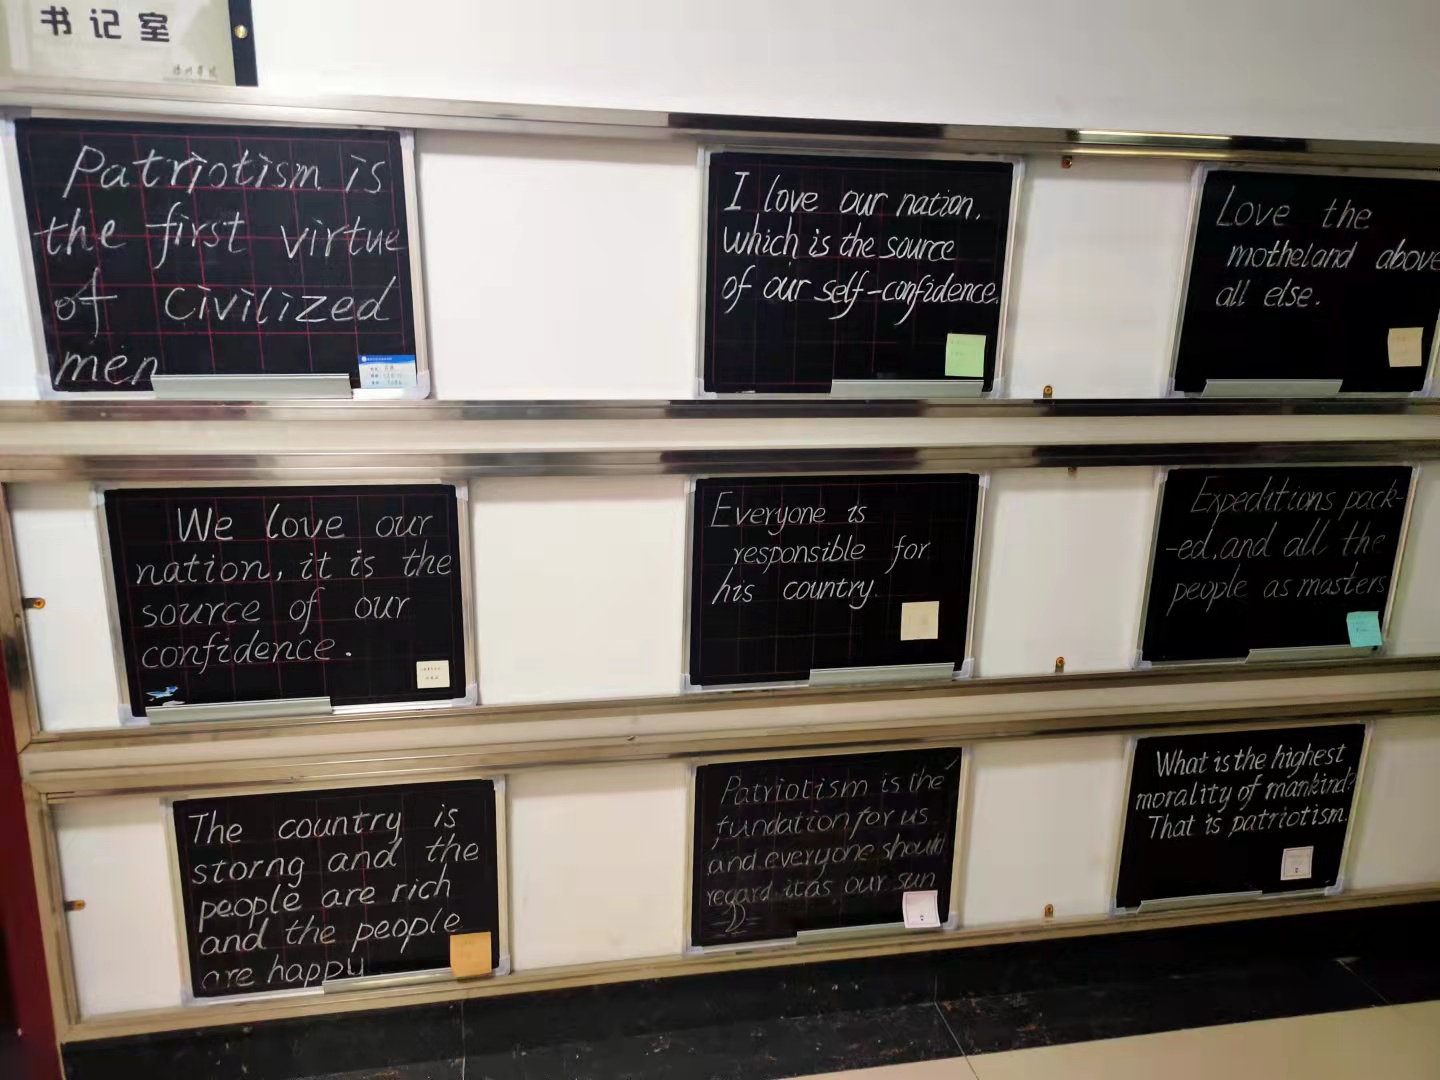 书记室
Patriotism is
the first virtue
of civilized
men
I love our nation,
which is the source
of our self-confidence.
Love the
motheland above
all else.
We love our
nation, it is the
source of our
confidence.
Everyone is
responsible for
his country.
Expeditions pack-
-ed, and all the
people as masters
The country is
storng and the
people are rich
and the people
are happy
Patriotism is the
fundation for us
and everyone should
regard it as our sun
What is the highest
morality of mankind?
That is patriotism.